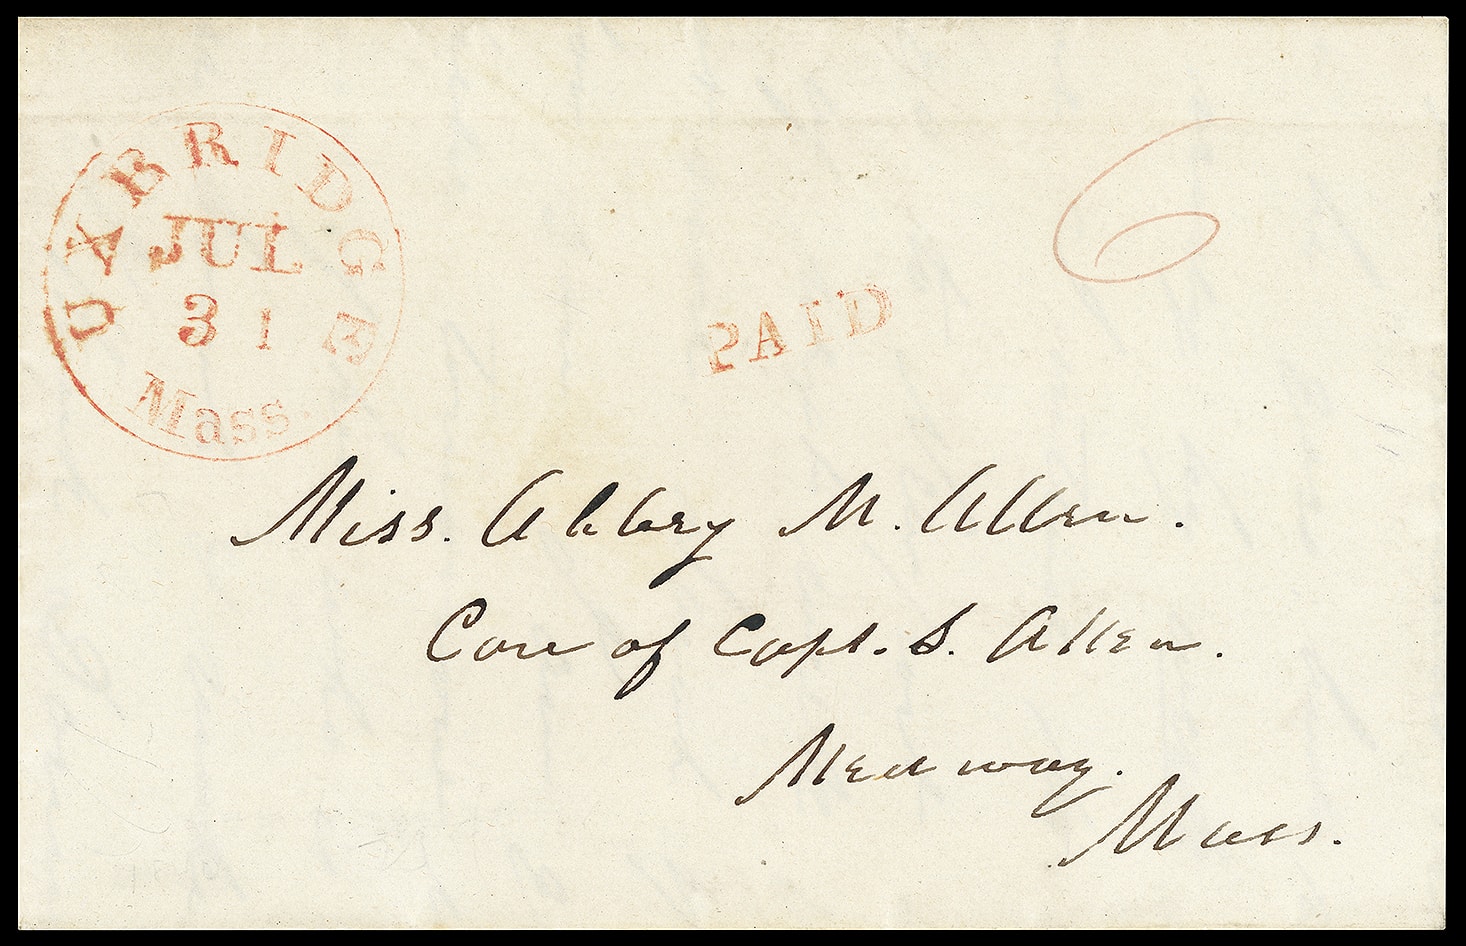 UXBRIDGE
JUL
31
Mass.
6
PAID
Miss. Abbey M. Allen.
Care of Capt. S. Allen.
Medway.
Mass.